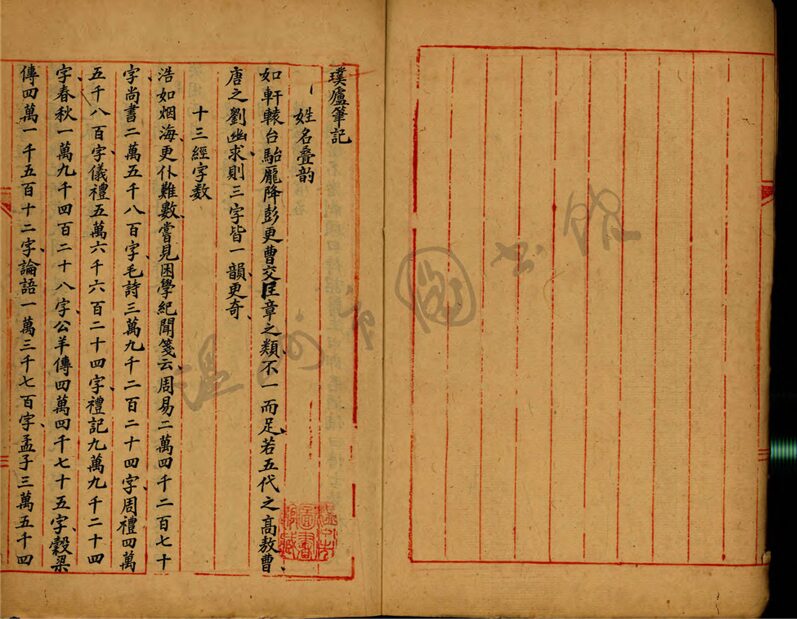 璞廬筆記
姓名疊韵
如軒轅台駘龎降彭更曹交匡章之類不一而足若五代之髙敖曹
唐之劉幽求則三字皆一韻更奇
十三經字数
浩如烟海更仆難數嘗見困學紀聞箋云周易二萬四千二百七十
字尚書二萬五千八百字毛詩三萬九千二百二十四字周禮四萬
五千八百字儀禮五萬六千六百二十四字禮記九萬九千二十四
字春秋一萬九千四百二十八字公羊傳四萬四千七十五字穀梁
傳四萬一千五百十二字論語一萬三千七百字孟子三萬五千四
温州市圖書館